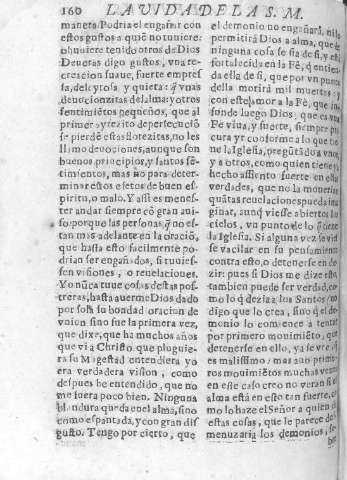 160 LA VIDA DE LA S. M.
manera. Podria el engañar con
estos gustos a quiẽ no tuuiere:
o huuiere tenido otros de Dios
De ueras digo gusto, vna re-
creacion suaue, fuerte empres
sa, deleytosa y quieta: q̃ vnas
deuocionzitas del alma: y otros
sentimiẽtos pequeños, que al
primer ayrezito de persecuciõ
se pierdẽ estas florezitas, no les
llamo deuociones, aunque son
buenos principios, y santos sẽ-
timientos, mas no para deter-
minar estos efetos de buen es-
piritu, o malo. Y assi es menes-
ter andar siempre cõ gran aui-
so: porque las personas q̃ no es-
tan mas adelante en la oraciõ,
que hasta esto facilmente po-
drian ser engañados, si tuuies-
sen visiones, o reuelaciones.
Yo nũca tuue cosas destas pos-
treras, hasta auerme Dios dado
por sola su bondad oracion de
vnion sino fue la primera vez,
que dixe, que ha muchos años
que vi a Christo, que pluguie-
ra su Magestad entendiera yo
era verdadera vision, como
despues he entendido, que no
me fuera poco bien. Ninguna
blandura queda en el alma, sino
como espantada, y con gran dis
gusto. Tengo por cierto, que
el demonio no engañarà, ni lo
permitirà Dios a alma, que de
ninguna cosa se fia de si, y està
fortalecida en la Fè, q̃ entien-
da ella de si, que por vn punto
della morirà mil muertes: y
con este amor a la Fè, que in-
funde luego Dios, que es vna
Fè viua, y fuerte, siempre pro-
cura yr conforme a lo que tie-
ne la Iglesia, pregũtado a vnos,
y a otros, como quien tiene ya
hecho assiento fuerte en estas
verdades, que no la menearian
quãtas reuelaciones pueda ima
ginar, aunq̃ viesse abiertos los
cielos, vn punto de lo q̃ tiene
la Iglesia. Si alguna vez se vies
se vacilar en su pensamiento
contra esto, o detenerse en de-
zir: pues si Dios me dize esto,
tambien puede ser verdad, co-
mo lo q̃ dezia a los Santos (no
digo que lo crea, sino que el de-
monio lo comience a tentar
por primero mouimiẽto, que
detenerse en ello, ya se vee q̃
es malissimo) mas aun prime-
ros mouimiẽtos muchas vezes
en este caso creo no veran si el
alma està en esto tan fuerte, co
mo lo haze el Señor a quien da
estas cosas, que le parece des-
menuzaria los demonios, so-